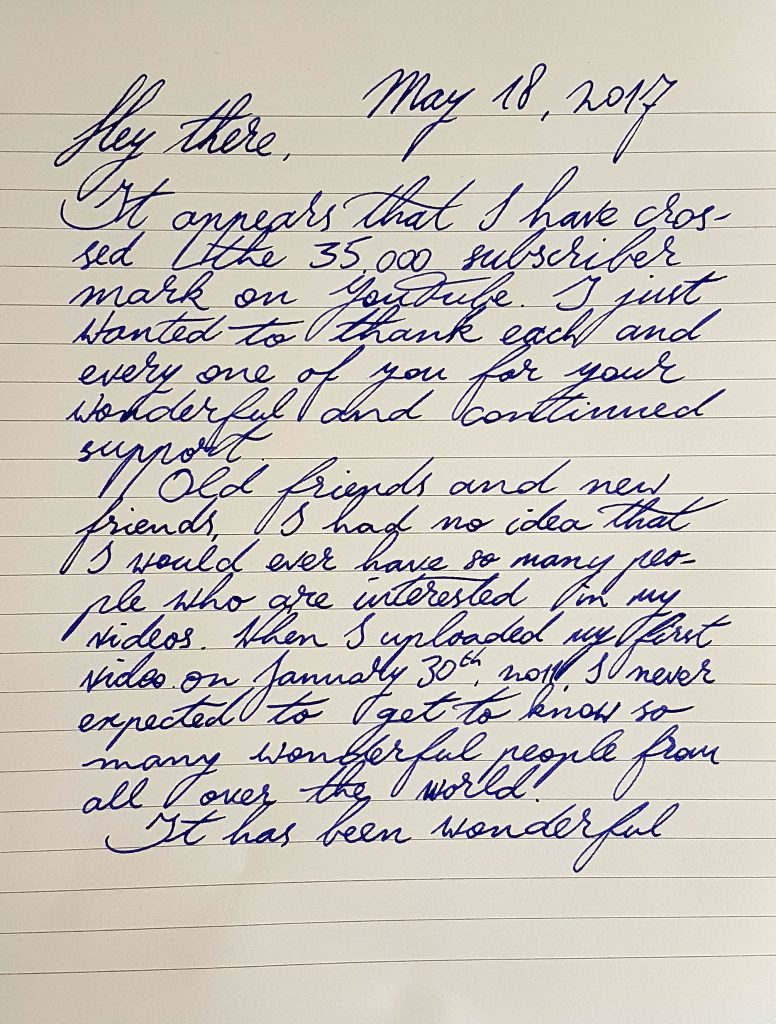 May 18, 2017
Hey there,
It appears that I have cros-
sed the 35,000 subscriber
mark on YouTube. I just
wanted to thank each and
every one of you for your
wonderful and continued
support.
Old friends and new
friends, I had no idea that
I would ever have so many peo-
ple who are interested in my
videos. When I uploaded my first
video on January 30th, 2011, I never
expected to get to know so
many wonderful people from
all over the world.
It has been wonderful